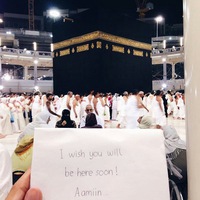 I wish you will
be here soon!
Aamiin...